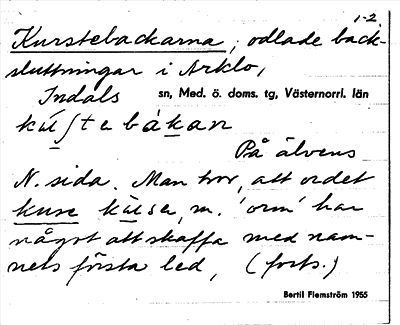 1-2.
Kurstebackarna, odlade back-
sluttningar i Arklo,
Indals sn, Med. ö. doms. tg, Västernorrl. län
På älvens
N. sida. Man tror, att ordet
m. 'orm' har
något att skaffa med nam-
nets första led, (forts.)
Bertil Flemström 1955